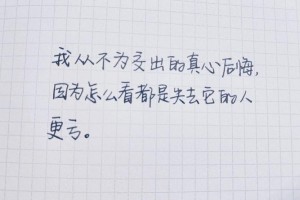 我从不为交出的真心后悔,
因为怎么看都是失去它的人
更亏。